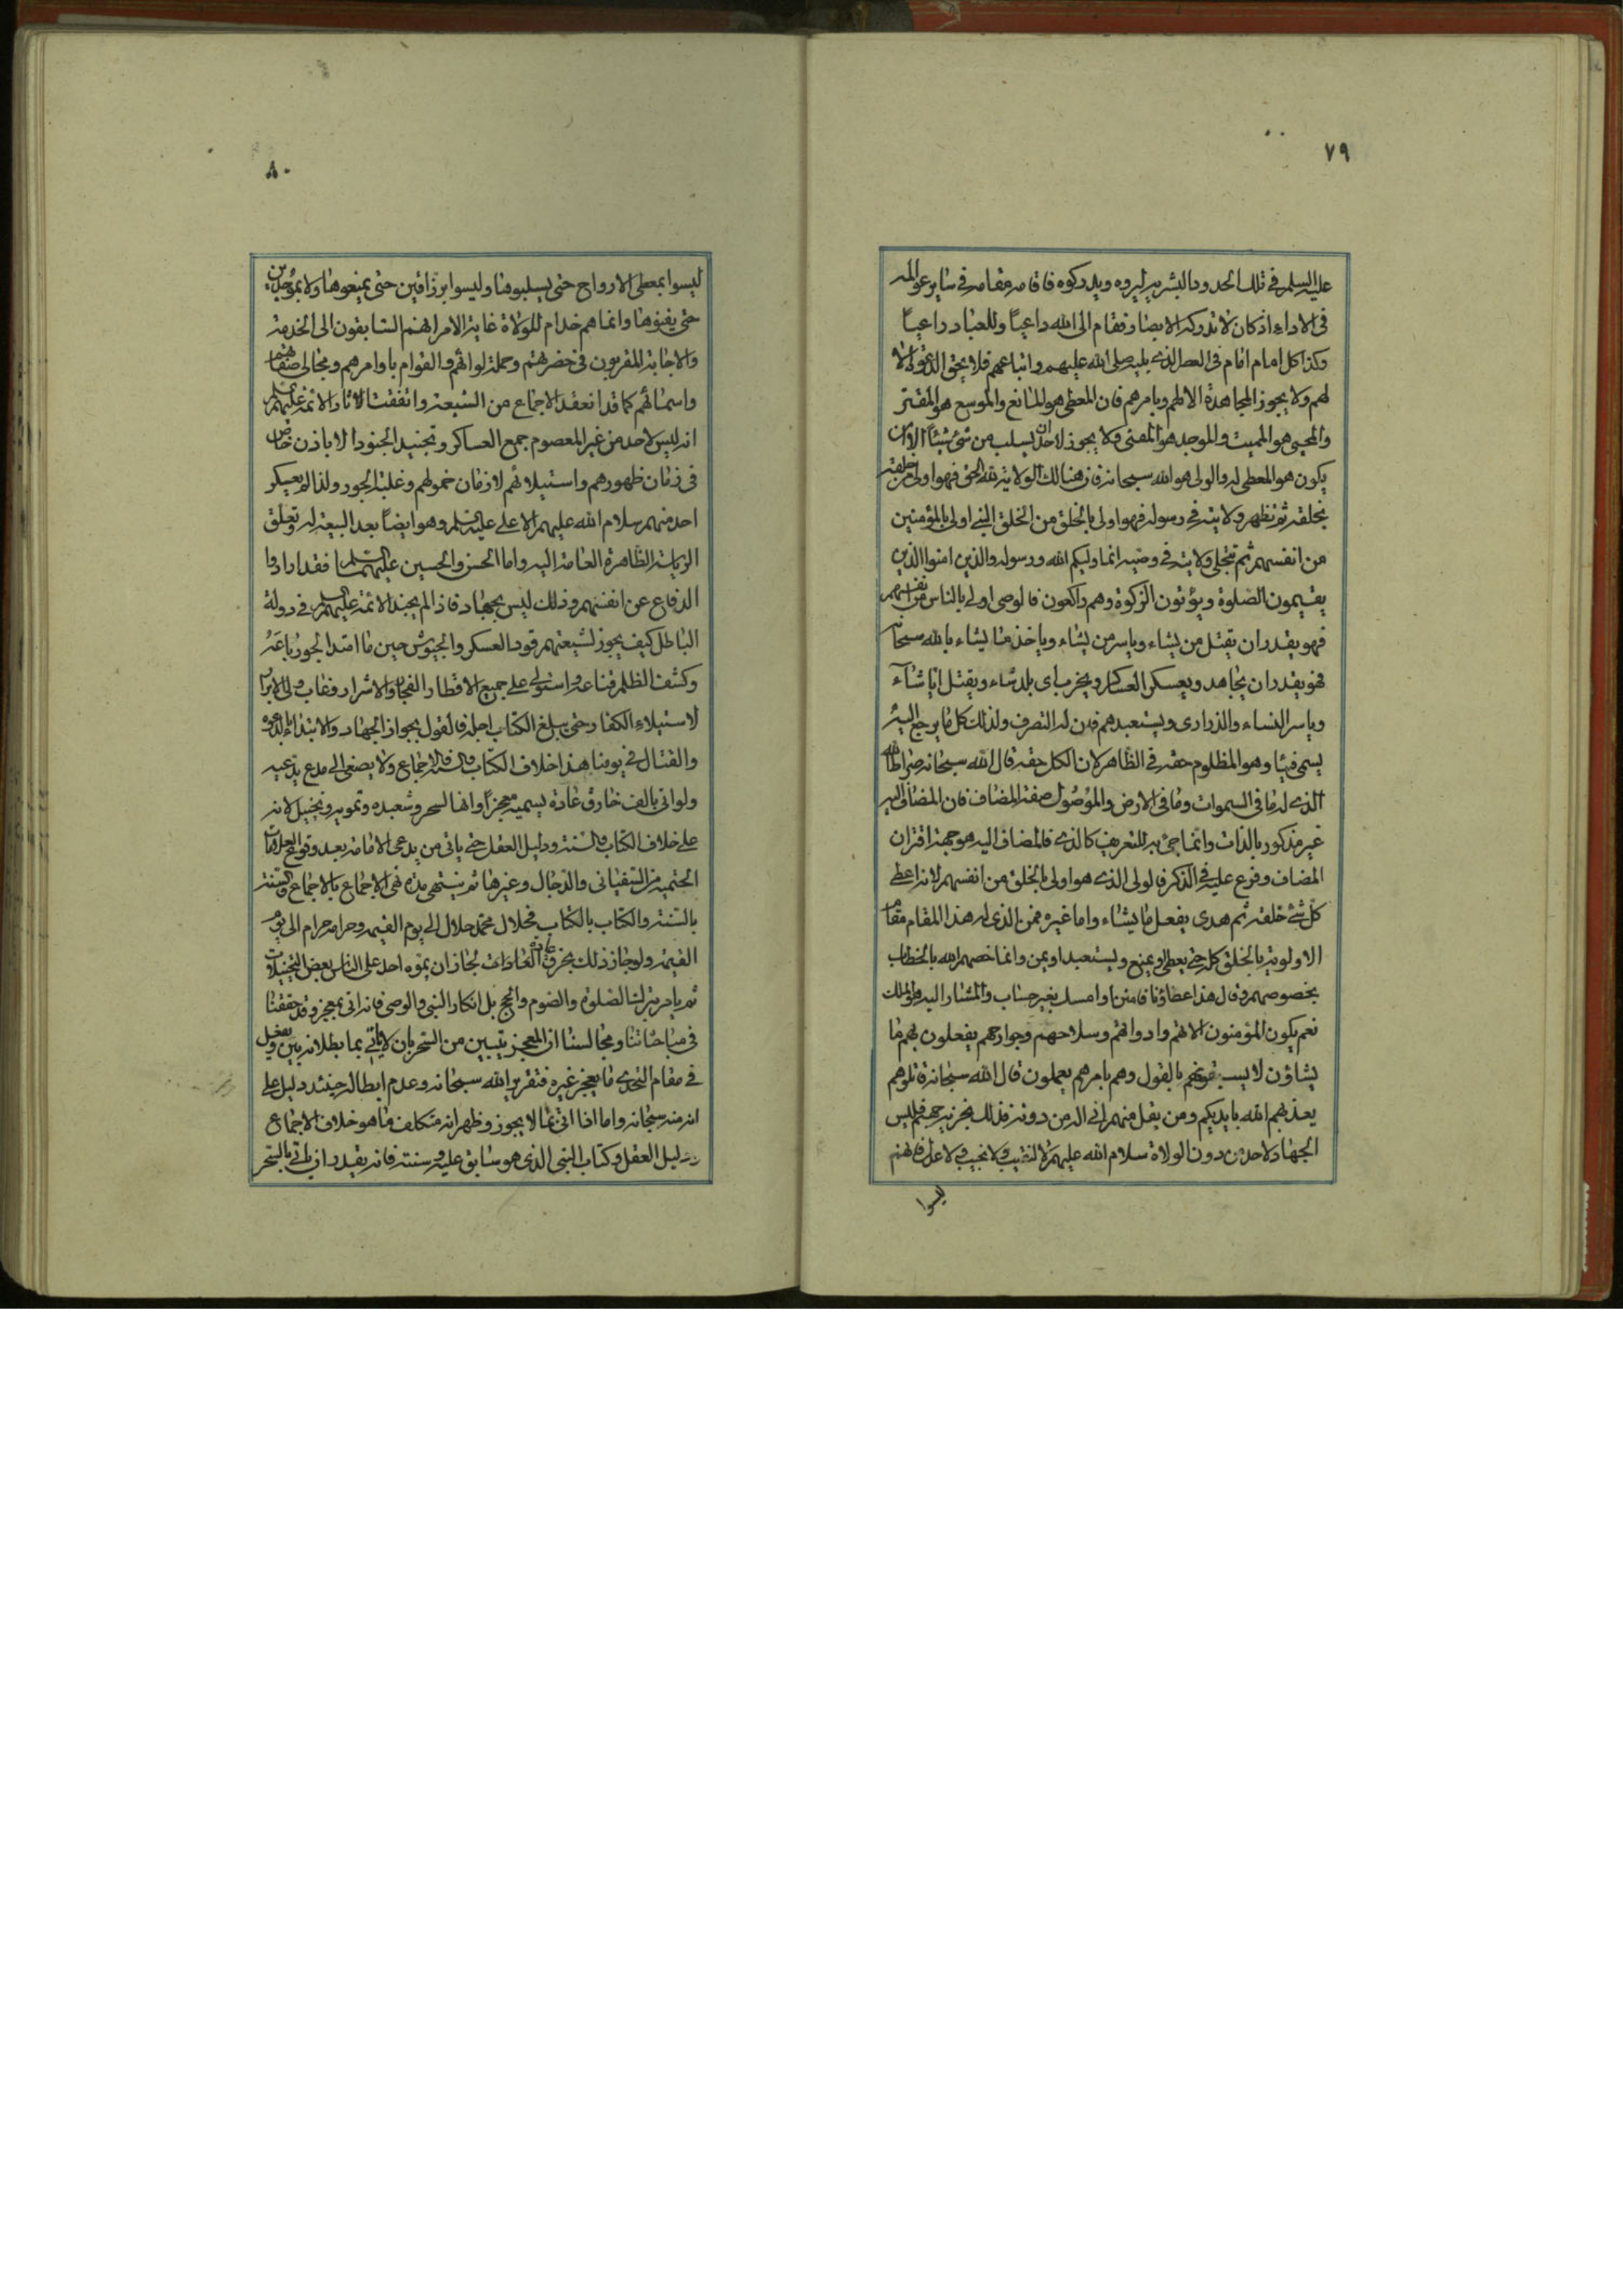 ٧٩
عليه السلم في تلك الحدود البشرية ليروه ويدركوه فاقامه مقامه في ساير عوالمه
في الاداء اذ كان لا تدركه الابصار فقام الى الله داعياً وللعباد راعياً
وكذا كل امام امام في العصر الذي يليه صلى الله عليهم واتباعهم فلا يحق الدعوة الا
لهم ولا يجوز المجاهدة الا لهم وبامرهم فان المعطي هو المانع والموسع هو المقتر
والمحيي هو المميت والموجد هو المفني ولا يجوز لاحد ان يسلب من شئ شيئا الا ان
يكون هو المعطي له والولي هو الله سبحانه فان هنالك الولاية لله الحق فهو اولى من خلقه
بخلقه ثم تظهر ولايته في رسوله فهو اولى بالخلق من الخلق النبي اولى بالمؤمنين
من انفسهم ثم تتجلى ولايته في وصيه انما وليكم الله ورسوله والذين امنوا الذين
يقيمون الصلوة ويؤتون الزكوة وهم راكعون فالوصي اولى بالناس من انفسهم
فهو يقدر ان يقتل من يشاء وياسر من يشاء وياخذ ممنا يشاء بالله سبحانه
فهو يقدر ان يجاهد ويعسكر العساكر ويخرب اي بلد شاء ويقتل ايا شآء
وياسر النساء والذراري ويستعبدهم فان له التصرف ولذلك كل ما يرجع اليه
يسمى فيئا وهو المظلوم حقه في الظاهر لان الكل حقه قال الله سبحانه صراط الله
الذي له ما في السموات وما في الارض والموصول صفة المضاف فان المضاف اليه
غير مذكور بالذات وانما جئ به للتعريف كالذي فالمضاف اليه هو جهة اقتران
المضاف وفرع عليه في الذكر فالولي الذي هو اولى بالخلق من انفسهم لانه اعطى
كل شئ خلقه ثم هدى يفعل ما يشاء واما غيره فمن الذي له هذا المقام مقام
الاولوية بالخلق كله حتى يعطي ويمنع ويستعبد او يمن وانما خصهم الله بالخطاب
بخصوصهم وقال هذا عطاؤنا فامنن او امسك بغير حساب والمشار اليه هو الملك
نعم يكون المؤمنون الاتهم وادواتهم وسلاحهم وجوارحهم يفعلون بهم ما
يشاؤن لا يسبقونهم بالقول وهم بامرهم يعملون قال الله سبحانه قاتلوهم
يعذبهم الله بايديكم ومن يقل منهم اني اله من دونه فذلك نجزيه جهنم فليس
الجهاد لاحد من دون الولاة سلام الله عليهم لا لنقيب ولا نجيب ولا عدل فانهم
ليسوا
٨٠
ليسوا بمعطي الارواح حتى يسلبوها وليسوا برزاقين حتى يمنعوها ولا بموجدين
حتى يفنوها وانما هم خدام للولاة غاية الامر انهم السابقون الى الخدمة
والاجابة المقربون في حضرتهم وحملة لوائهم والقوام باوامرهم ومجالي صفاتهم
واسمائهم كما قد انعقد الاجماع من الشيعة واتفقت الاثار الائمة عليهم السلم
انه ليس لاحد من غير المعصوم جمع العساكر وتجنيد الجنود الا باذن خاص
في زمان ظهورهم واستيلائهم لا زمان خمولهم وغلبة الجور ولذا لم يعسكر
احد منهم سلام الله عليهم الا علي عليه السلم وهو ايضاً بعد البيعة له وتعلق
الرياسة الظاهرة العامة اليه واما الحسن والحسين عليهما السلم فقد ارادوا
الدفاع عن انفسهم وذلك ليس بجهاد فاذا لم يجند الائمة عليهم السلم في دولة
الباطل كيف يجوز لشيعتهم قود العسكر والجيوش حين ما امتد الجور باعه
وكشف الظلم قناعه واستولى على جميع الاقطار الفجار والاشرار وغاب ولي الابرار
لاستيلاء الكفار حتى يبلغ الكتاب اجله فالقول بجواز الجهاد والابتداء بالدعوة
والقتال في يومنا هذا خلاف الكتاب والسنة والاجماع ولا يصغى الى مدع يدعيه
ولو اتى بالف خارق عادة يسميه معجزاً وانها السحر وشعبده وتمويه وتخييل لانه
على خلاف الكتاب والسنة ودليل العقل حتى ياتي من يدعي الامامة بعد وقوع العلامات
الحتمية من السفياني والدجال وغيرها ثم ينتهي مدة نفي الاجماع بالاجماع والسنة
بالسنة والكتاب بالكتاب فحلال محمد حلال الى يوم القيمة وحرامه حرام الى يوم
القيمة ولو جاز ذلك بخرق العادات لجاز ان يموه احد على الناس بعض التخيلات
ثم يامر بترك الصلوة والصوم والحج بل انكار النبي والوصي فانه اتى بمعجز وقد حققنا
في مباحثاتنا ومجالسنا ان المعجز يتبين من السحر بان لا ياتي بما بطلانه بين ويفعل
في مقام التحدي ما يعجز غيره فتقرير الله سبحانه وعدم ابطاله حينئذ دليل على
انه منه سبحانه واما اذا اتى بما لا يجوز وظهر انه متكلف ما هو خلاف الاجماع
ودليل العقل وكتاب النبي الذي هو سابق عليه وسنته فانه يقيد ان ياتي بالسحر